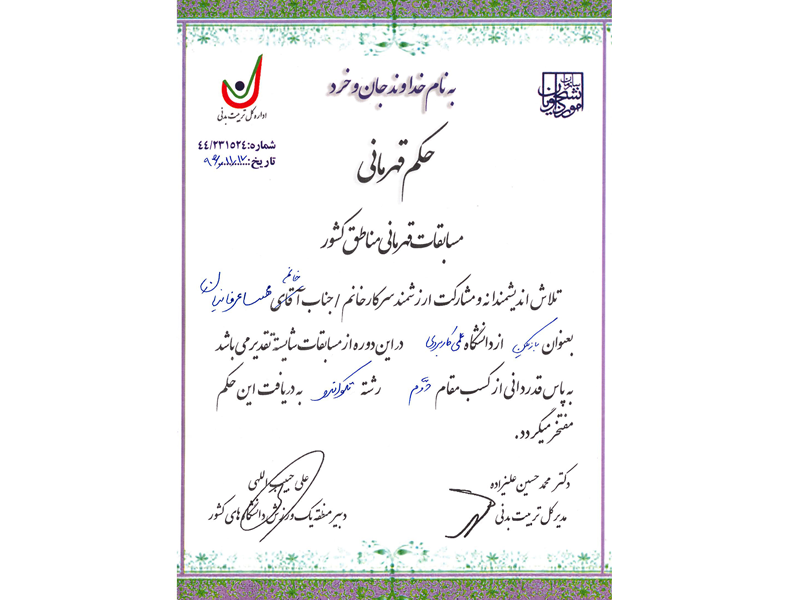 به نام خداوند جان و خرد
اداره کل تربیت بدنی
شماره: ۴۴/۲۳۱۵۲۴
تاریخ:
حکم قهرمانی
مسابقات قهرمانی مناطق کشور
خانم
تلاش اندیشمندانه و مشارکت ارزشمند سرکار خانم / جناب آقای مهسا عرفانیان
بعنوان بازیکن از دانشگاه علمی کاربردی در این دوره از مسابقات شایسته تقدیر می باشد
به پاس قدردانی از کسب مقام دوم رشته تکواندو به دریافت این حکم
مفتخر میگردد.
دکتر محمد حسین علیزاده
مدیر کل تربیت بدنی
علی حبیب اللهی
دبیر منطقه یک ورزش دانشگاه های کشور